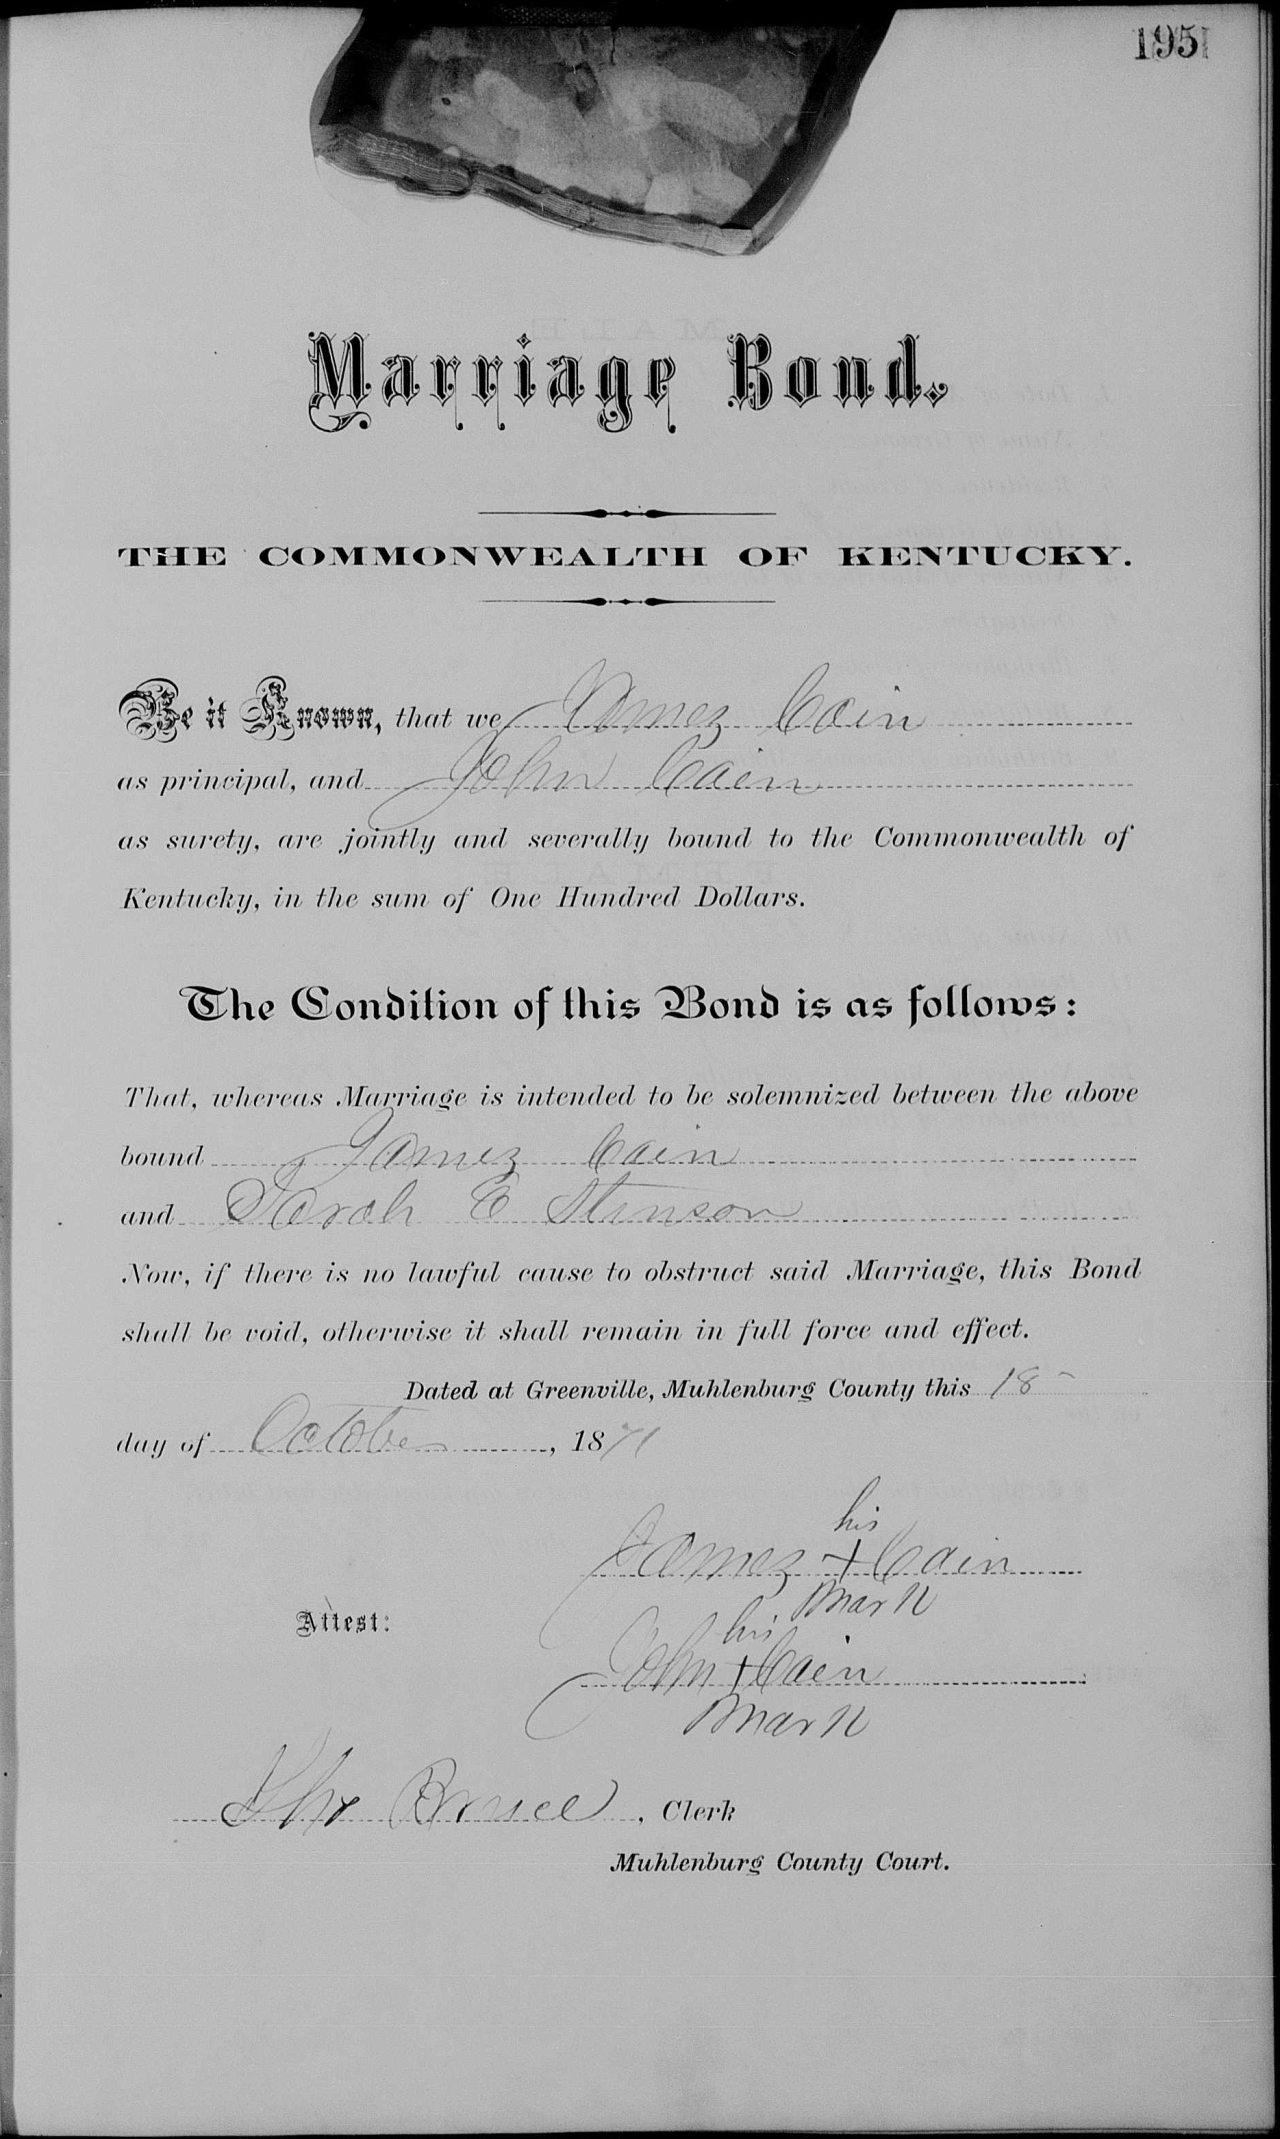 195
Marriage Bond.
THE COMMONWEALTH OF KENTUCKY.
Be it Known, that we James Cain
as principal, and John Cain
as surety, are jointly and severally bound to the Commonwealth of
Kentucky, in the sum of One Hundred Dollars.
The Condition of this Bond is as follows:
That, whereas Marriage is intended to be solemnized between the above
bound James Cain
and Sarah E Stinson
Now, if there is no lawful cause to obstruct said Marriage, this Bond
shall be void, otherwise it shall remain in full force and effect.
Dated at Greenville, Muhlenburg County this 18
day of October, 1871
his
James + Cain
mark
Attest:
his
John + Cain
mark
Bruce, Clerk
Muhlenburg County Court.